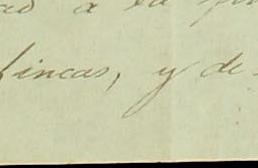 a la
fincas, y de